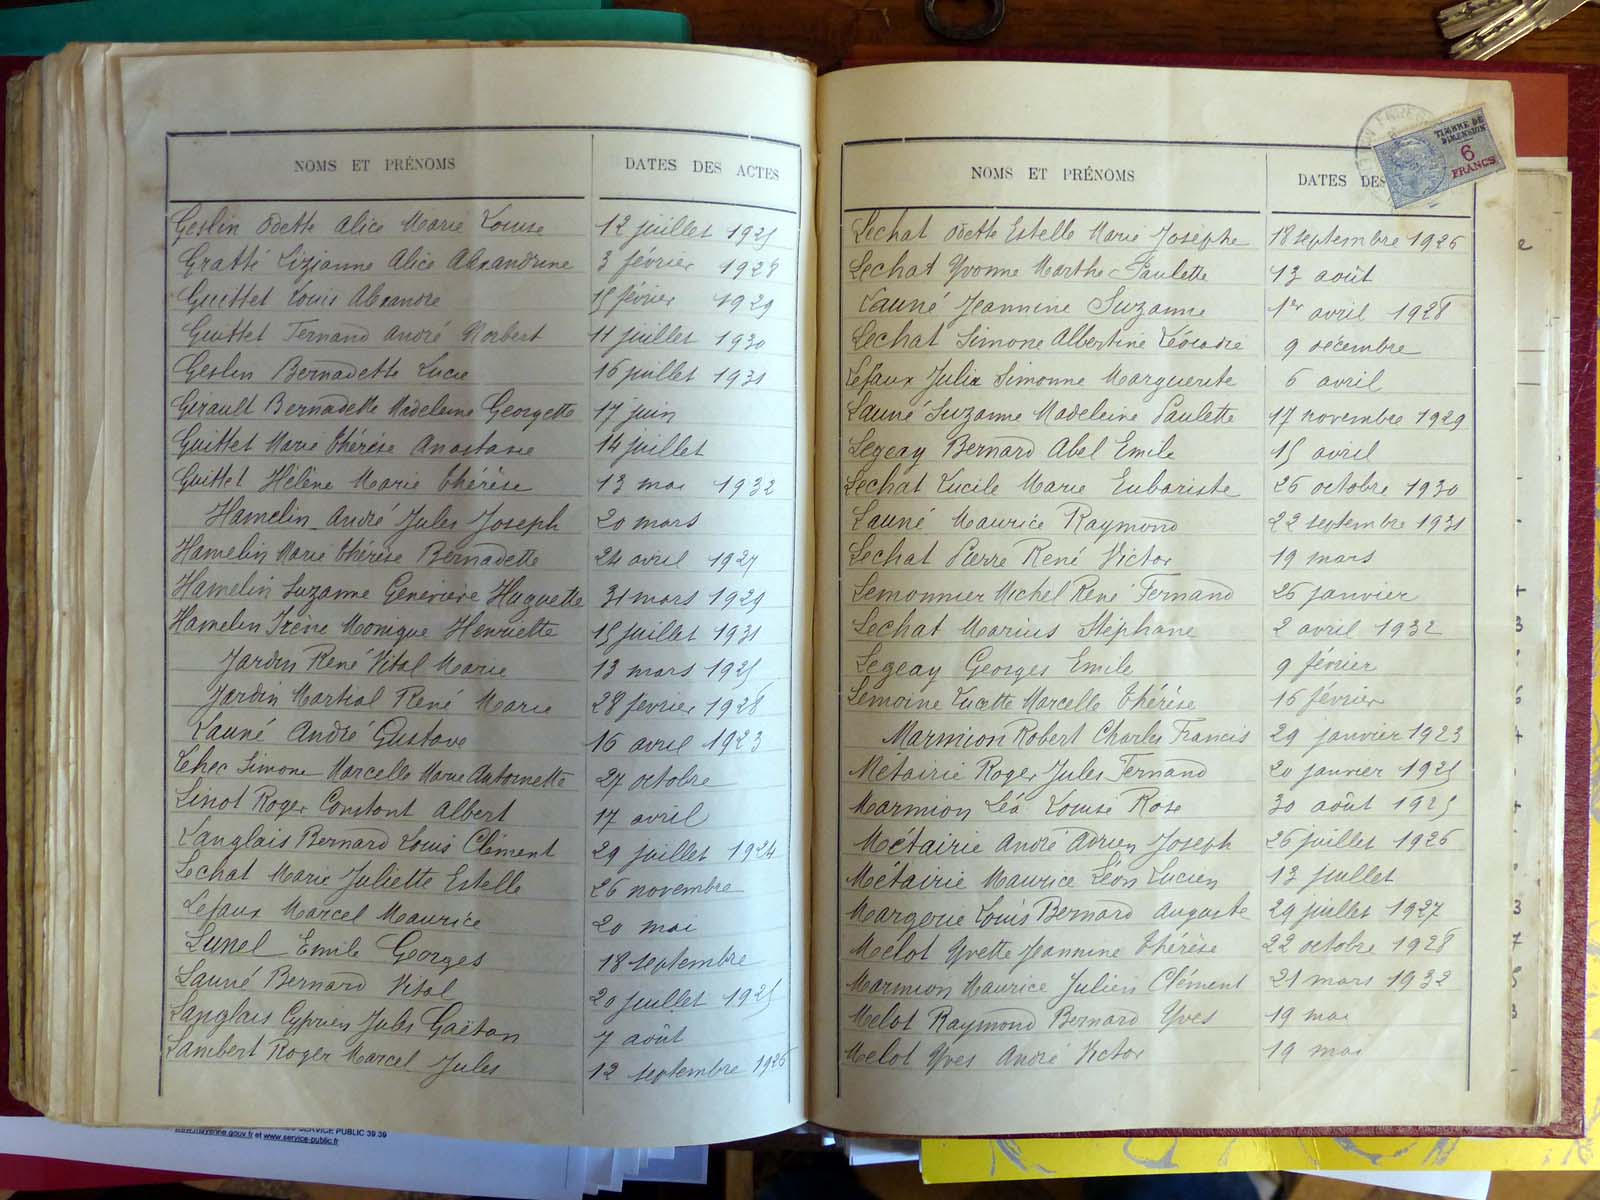 NOMS ET PRÉNOMS
DATES DES ACTES
Geslin Odette Alice Marie Louise 12 juillet 1925
Gratté Lizianne Alice Alexandrine 3 février 1928
Guittet Louis Alexandre 15 février 1929
Guittet Fernand André Norbert 11 juillet 1930
Geslin Bernadette Lucie 16 juillet 1931
Girault Bernadette Madeleine Georgette 17 juin
Guittet Marie Thérèse Anastasie 14 juillet
Guittet Hélène Marie Thérèse 13 mai 1932
Hamelin André Jules Joseph 20 mars
Hamelin Marie Thérèse Bernadette 24 avril 1927
Hamelin Suzanne Geneviève Huguette 31 mars 1929
Hamelin Irène Monique Henriette 15 juillet 1931
Jardin René Vital Marie 13 mars 1925
Jardin Martial René Marie 28 février 1928
Launé André Gustave 16 avril 1923
Simone Marcelle Marie Antoinette 27 octobre
Linot Roger Constant Albert 17 avril
Langlais Bernard Louis Clément 29 juillet 1924
Lechat Marie Juliette Estelle 26 novembre
Lefaux Marcel Maurice 20 mai
Lunel Emile Georges 18 septembre
Launé Bernard Vital 20 juillet 1925
Langlais Cyprien Jules Gaëtan 7 août
Lambert Roger Marcel Jules 12 septembre 1926
NOMS ET PRÉNOMS
DATES DES
TIMBRE DE
DIMENSION
6
FRANCS
Lechat Odette Estelle Marie Josephe 18 septembre 1926
Lechat Yvonne Marthe Paulette 13 août
Launé Jeannine Suzanne 1er avril 1928
Lechat Simone Albertine Léocadie 9 décembre
Lefaux Julia Simonne Marguerite 6 avril
Launé Suzanne Madeleine Paulette 17 novembre 1929
Legeay Bernard Abel Emile 15 avril
Lechat Lucile Marie Eubariste 26 octobre 1930
Launé Maurice Raymond 22 septembre 1931
Lechat Pierre René Victor 19 mars
Lemonnier Michel René Fernand 26 janvier
Lechat Marius Stéphane 2 avril 1932
Legeay Georges Emile 9 février
Lemoine Lucette Marcelle Thérèse 16 février
Marmion Robert Charles Francis 29 janvier 1923
Métairie Roger Jules Fernand 20 janvier 1925
Marmion Léa Louise Rose 30 août 1925
Métairie André Adrien Joseph 26 juillet 1926
Métairie Maurice Léon Lucien 13 juillet
Margerie Louis Bernard Auguste 29 juillet 1927
Melot Yvette Jeannine Thérèse 22 octobre 1928
Marmion Maurice Julien Clément 21 mars 1932
Melot Raymond Bernard Yves 19 mai
Melot Yves André Victor 19 mai
SERVICE PUBLIC 39 39
www.mayenne.gouv.fr et www.service-public.fr